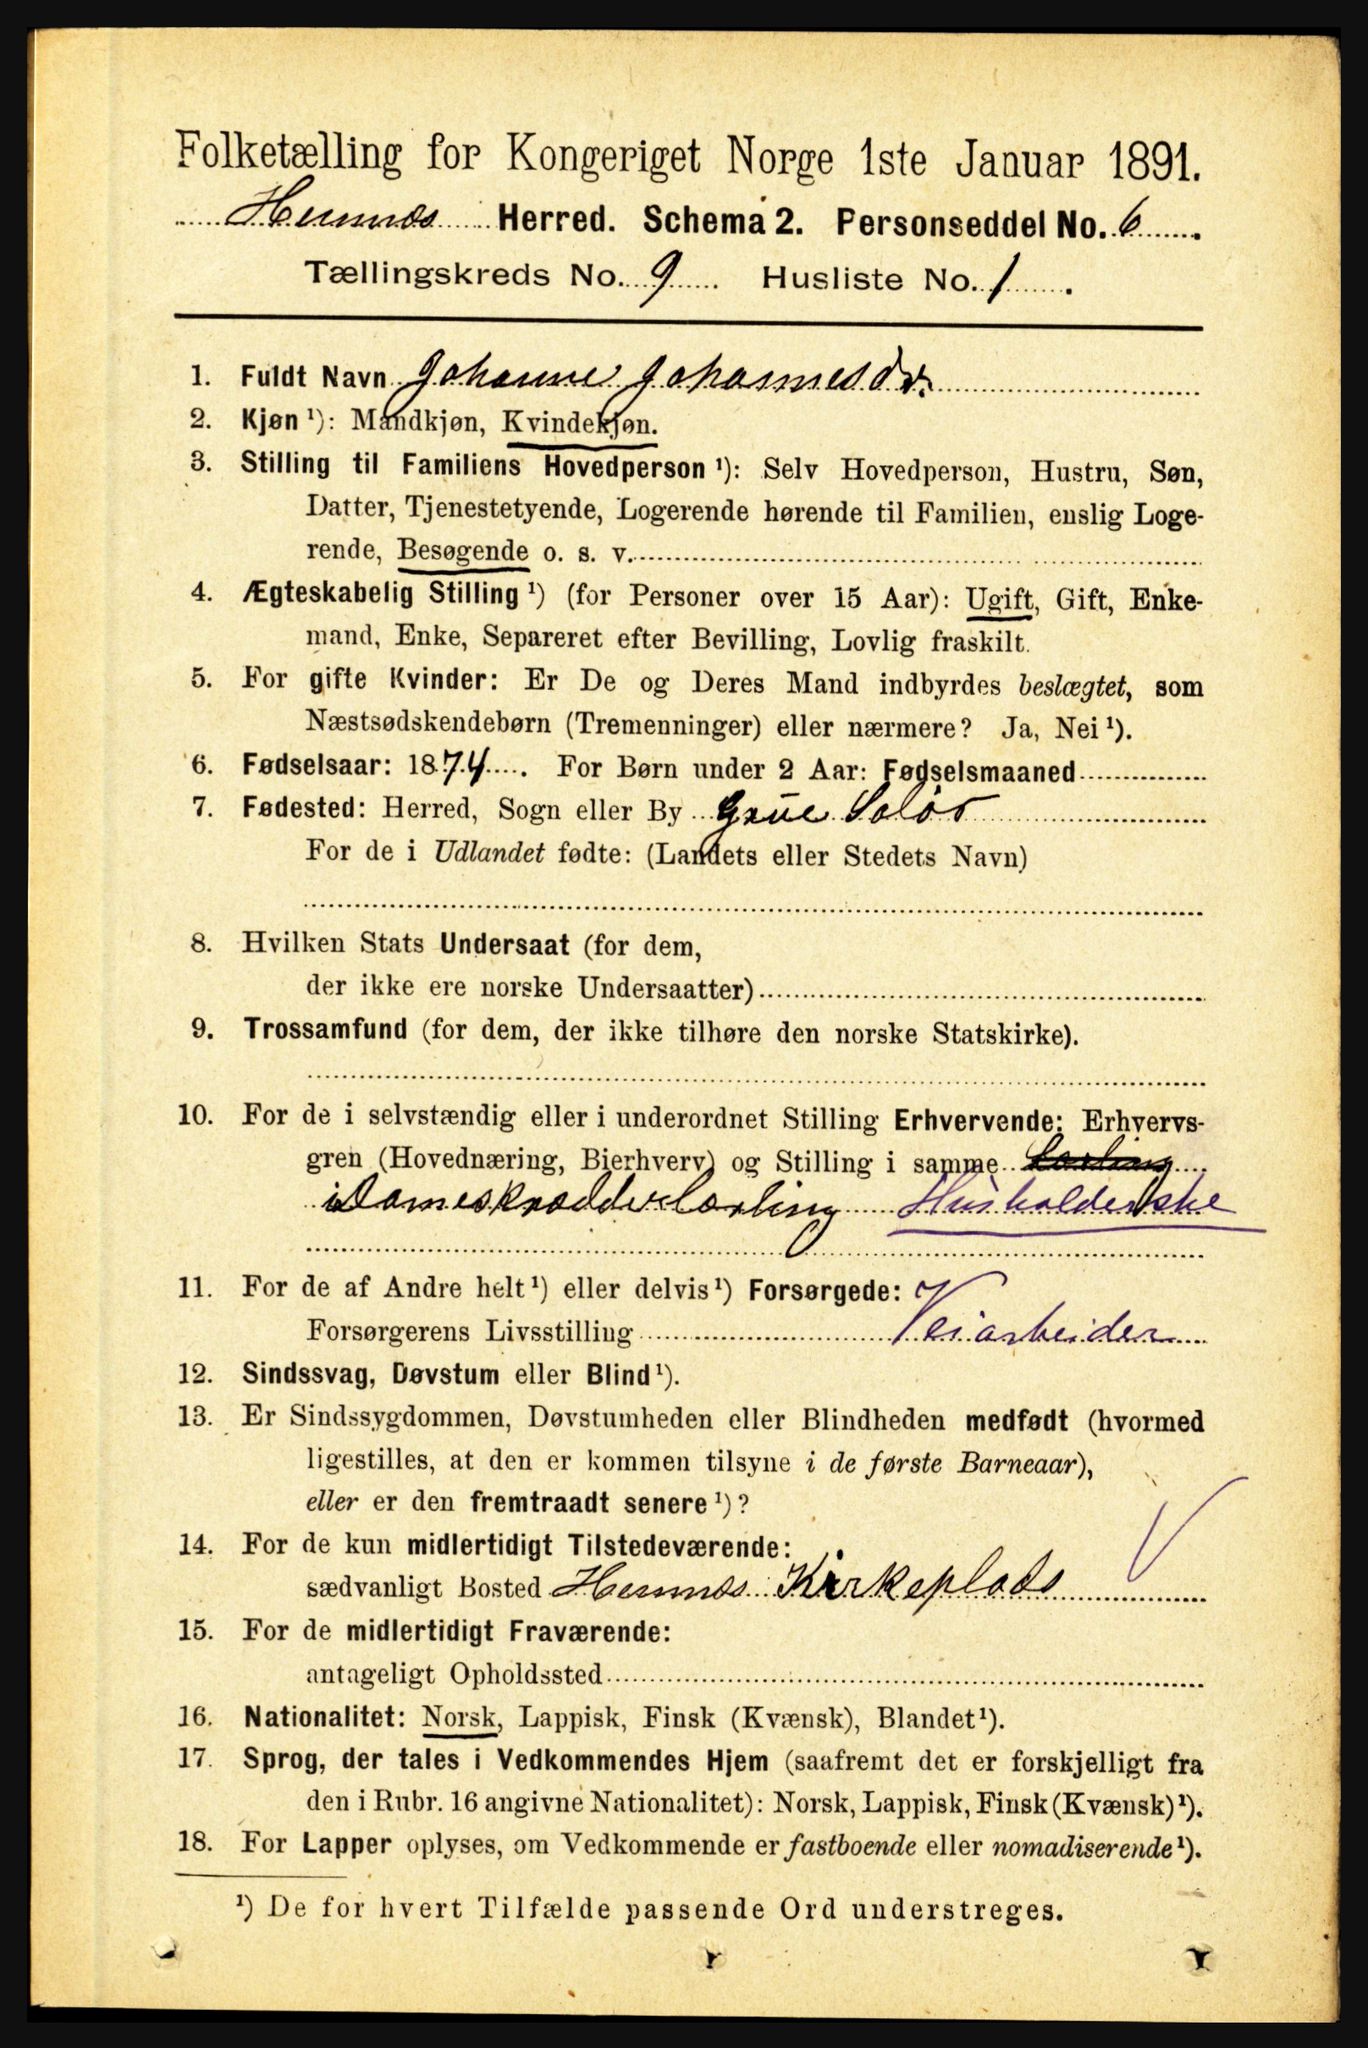 Folketælling for Kongeriget Norge 1ste Januar 1891.
Hemnæs Herred. Schema 2. Personseddel No. 6.
Tællingskreds No. 9 Husliste No. 1.
1. Fuldt Navn Johanne Johannesdr.
2. Kjøn ¹): Mandkjøn, Kvindekjøn.
3. Stilling til Familiens Hovedperson ¹): Selv Hovedperson, Hustru, Søn,
Datter, Tjenestetyende, Logerende hørende til Familien, enslig Loge-
rende, Besøgende o. s. v.
4. Ægteskabelig Stilling ¹) (for Personer over 15 Aar): Ugift, Gift, Enke-
mand, Enke, Separeret efter Bevilling, Lovlig fraskilt.
5. For gifte Kvinder: Er De og Deres Mand indbyrdes beslægtet, som
Næstsødskendebørn (Tremenninger) eller nærmere? Ja, Nei ¹).
6. Fødselsaar: 1874. For Børn under 2 Aar: Fødselsmaaned
7. Fødested: Herred, Sogn eller By Grue Solør
For de i Udlandet fødte: (Landets eller Stedets Navn)
8. Hvilken Stats Undersaat (for dem,
der ikke ere norske Undersaatter)
9. Trossamfund (for dem, der ikke tilhøre den norske Statskirke).
10. For de i selvstændig eller i underordnet Stilling Erhvervende: Erhvervs-
gren (Hovednæring, Bierhverv) og Stilling i samme Lærling
Dameskrædderlærling Husholderske
11. For de af Andre helt ¹) eller delvis ¹) Forsørgede:
Forsørgerens Livsstilling Veiarbeider
12. Sindssvag, Døvstum eller Blind ¹).
13. Er Sindssygdommen, Døvstumheden eller Blindheden medfødt (hvormed
ligestilles, at den er kommen tilsyne i de første Barneaar),
eller er den fremtraadt senere ¹)?
14. For de kun midlertidigt Tilstedeværende:
sædvanligt Bosted Hemnæs Kirkeplads
15. For de midlertidigt Fraværende:
antageligt Opholdssted
16. Nationalitet: Norsk, Lappisk, Finsk (Kvænsk), Blandet ¹).
17. Sprog, der tales i Vedkommendes Hjem (saafremt det er forskjelligt fra
den i Rubr. 16 angivne Nationalitet): Norsk, Lappisk, Finsk (Kvænsk) ¹).
18. For Lapper oplyses, om Vedkommende er fastboende eller nomadiserende ¹).
¹) De for hvert Tilfælde passende Ord understreges.